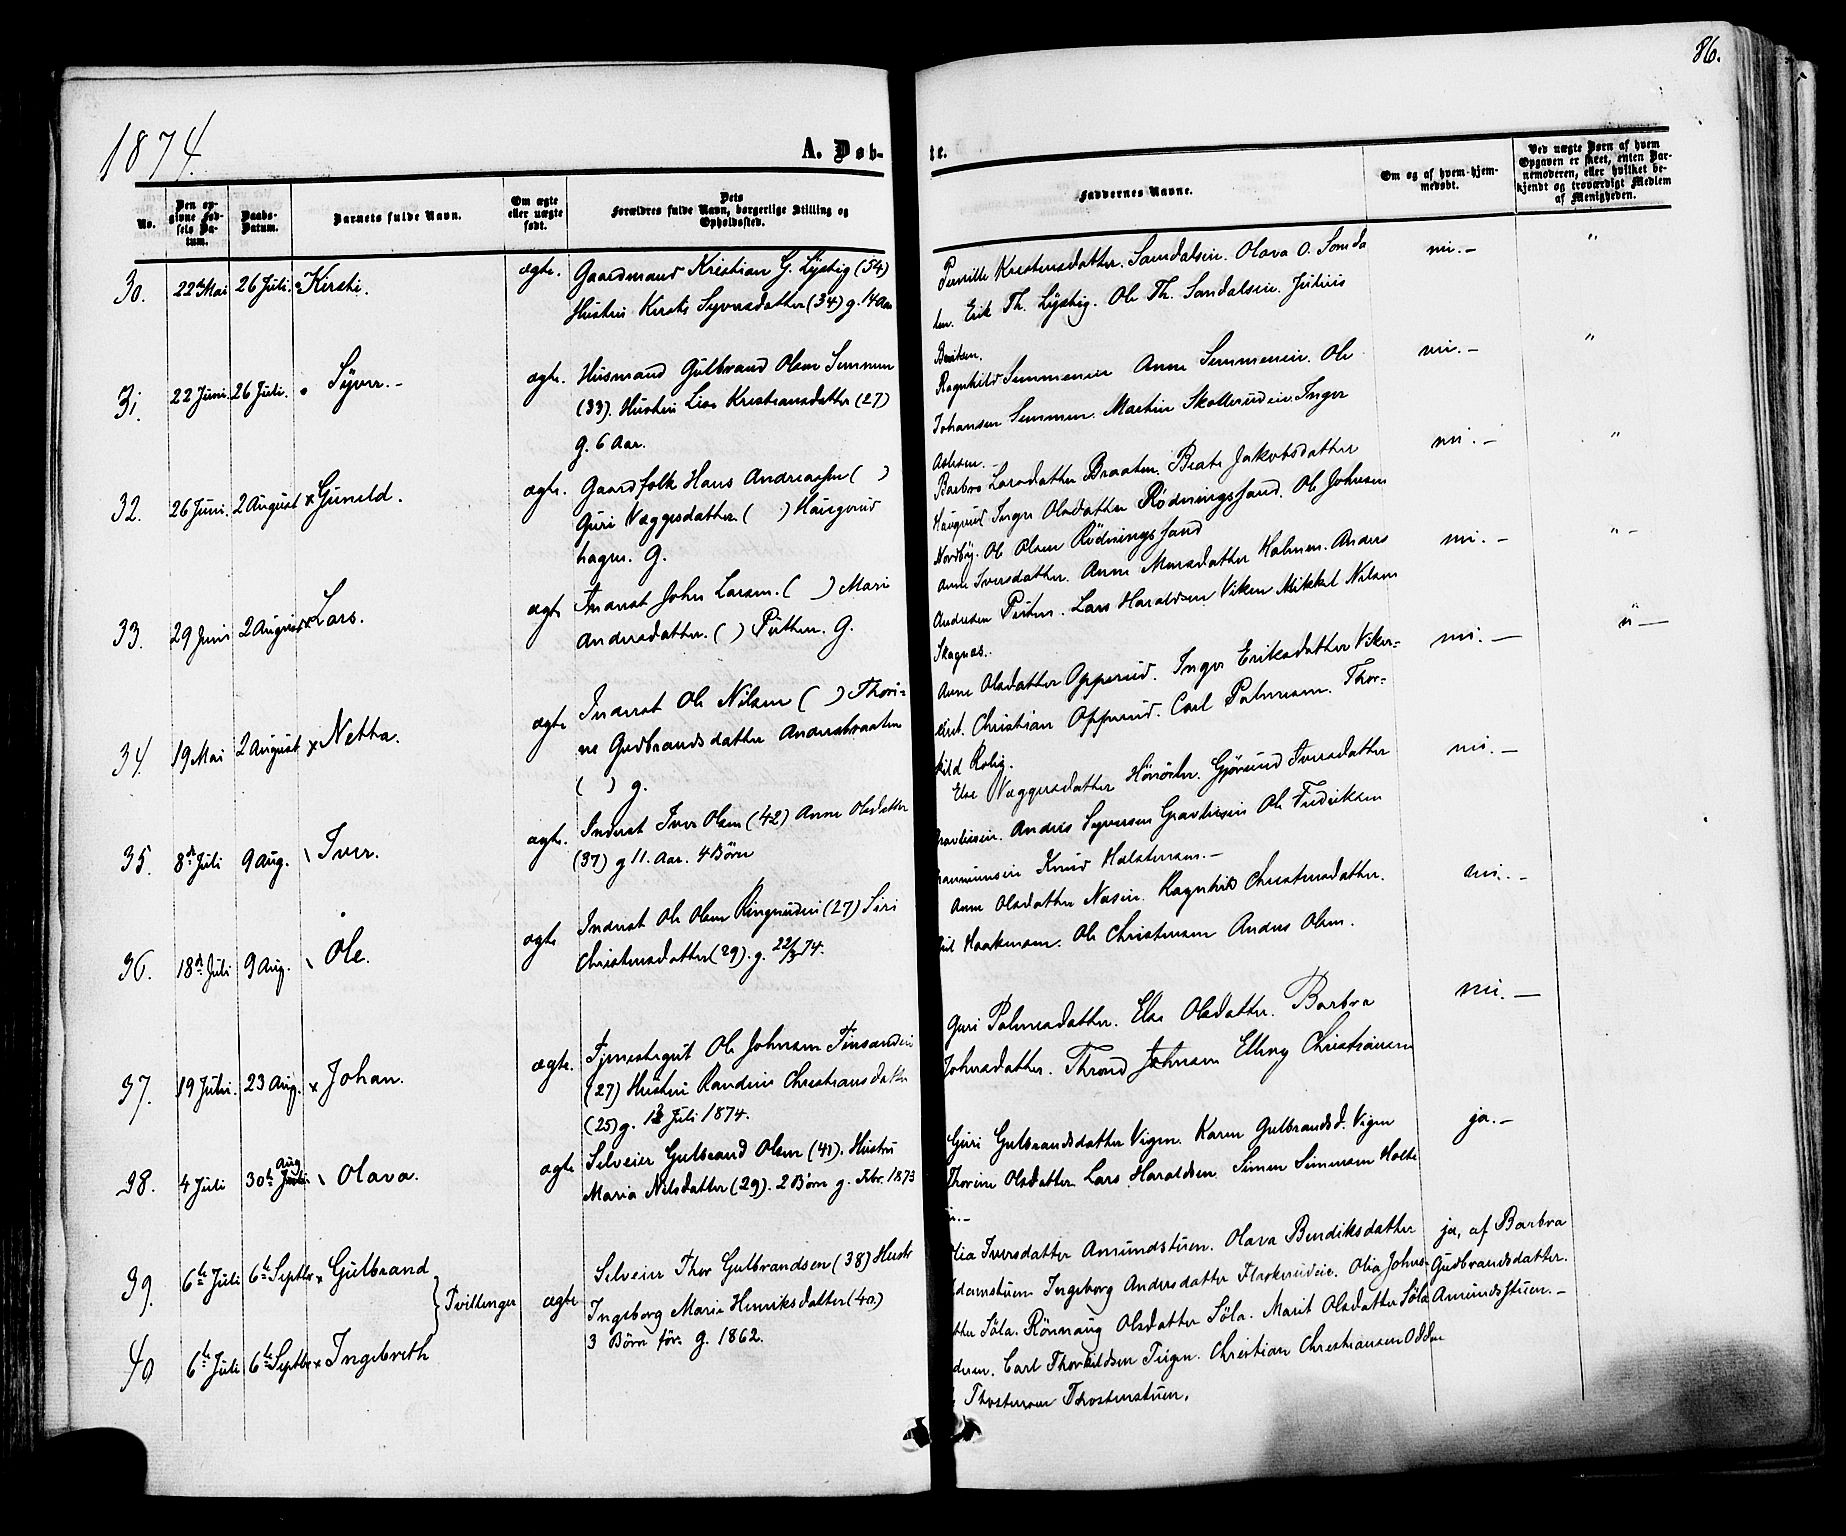 86.
1874.
A. Døb-
te.
No.
Den op-
givne Fød-
sels Da-
tum.
Daabs-
Datum.
Barnets fulde Navn.
Om ægte
eller uægte
født.
Dets
Forældres fulde Navn, borgerlige Stilling og
Opholdssted.
Faddernes Navne.
Om og af hvem hjem-
medøbt.
Ved uægte Børn af hvem
Opgaven er skeet, enten Bar-
nemoderen, eller hvilket be-
kjendt og troværdigt Medlem
af Menigheden.
30. 22de Mai 26 Juli. Kirsti. ægte. Gaardmand Kristian G. Lystig (54)
Hustru Kirsti Syversdatter (34) g. 14 Aar
Pernille Kristensdatter. Sandalseie. Olava O. Sanda
len. Erik Th. Lystig. Ole Th. Sandalseie. Julius
Beritsen.
nei. - "
31. 22 Juni. 26 Juli. Syver. - ægte. Husmand Gulbrand Olsen Semmen
(33). Hustru Lise Kristiansdatter (27)
g. 6 Aar.
Ragnhild Semmeneie Anne Semmeneie. Ole
Johansen Semmen. Martin Skollerudeie. Inger
Aslesen. -
nei. - "
32. 26 Juni. 2 August x Gunild. ægte. Gaardfolk Hans Andreassen ( )
Guri Væggersdatter ( ) Haugerud
hagen. G.
Barbro Larsdatter Braaten. Beate Jakobsdatter
Haugerud Inger Olsdatter Rødningssand. Ole Johnsen
Nordby. Ole Olsen Rødningssand
nei. - "
33. 29 Juni 2 August x Lars. ægte Inderst John Larsen. ( ) Mari
Andersdatter. ( ) Pütten. G.
Anne Iversdatter. Anne Monsdatter Holmen. Anders
Andersen Pütten. Lars Haraldsen Viken Mikkel Nilsen
Skagnæs.
nei. - " -
34. 19 Mai 2 August x Netta. ægte Inderst Ole Nilsen ( ) Thori-
ne Gudbrandsdatter Andersbraaten
( ) g.
Anne Olsdatter Opperud. Inger Eriksdatter Viker-
eiet. Christian Opperud. Carl Palmesen. Thor-
kild Rolig.
nei. - " -
35. 8de Juli 9 Aug. Iver. ægte. Inderst Iver Olsen (42) Anne Olsdatter
(37) g 11. Aar. 4 Børn
Else Væggersdatter Gjørund Iversdatter
Gravlieeie. Anders Syversen Gravlieeie Ole Fredriksen
Knud Halstensen. -
nei. -
36. 18de Juli 9 Aug. Ole. ægte Inderst Ole Olsen Ringerudeie (27) Siri
Christensdatter (29). g. 22/3 74.
Anne Olsdatter Næseie. Ragnhild Christensdatter.
Haakensen. Ole Christensen Anders Olsen.
nei. -
37. 19 Juli. 23 Aug. x Johan. ægte. Tjenestegut Ole Johnsen Finsandeie
(27) Hustru Randine Christiansdatter
(25) g. 13 Juli 1874.
Guri Palmesdatter. Else Olsdatter. Barbra
Johnsdatter. Thrond Johnsen Elling Christiansen
nei. -
38. 4 Juli 30te Juli Aug Olava. ægte Selveier Gulbrand Olsen (41). Hustru
Maria Nilsdatter (29). 2 Børn g. Febr. 1873
Guri Gulbrandsdatter Vigen. Karen Gulbrandsd. Vigen
Thorine Olsdatter Lars Haraldsen. Simen Simensen Holte
ja. -
39. 6te Juli 6te Septbr x Gulbrand
Tvillinger
ægte Selveier Thor Gulbrandsen (38) Hustr
Ingeborg Marie Henriksdatter (40.)
3 Børn før. g. 1862.
Olia Iversdatter Amundstuen. Olava Bendiksdatter
Adamstuen Ingeborg Andersdatter Flaskerudeie. Olia Johns
datter Søla. Rønnaug Olsdatter Søla. Marit Olsdatter Søla
Carl Thorkildsen Teigen. Christian Christiansen Odden
Thostensen Thostenstuen.
ja, af Barbra
Gudbrandsdatter.
Amundstuen. -
40 6te Juli 6te Septbr x Ingebreth